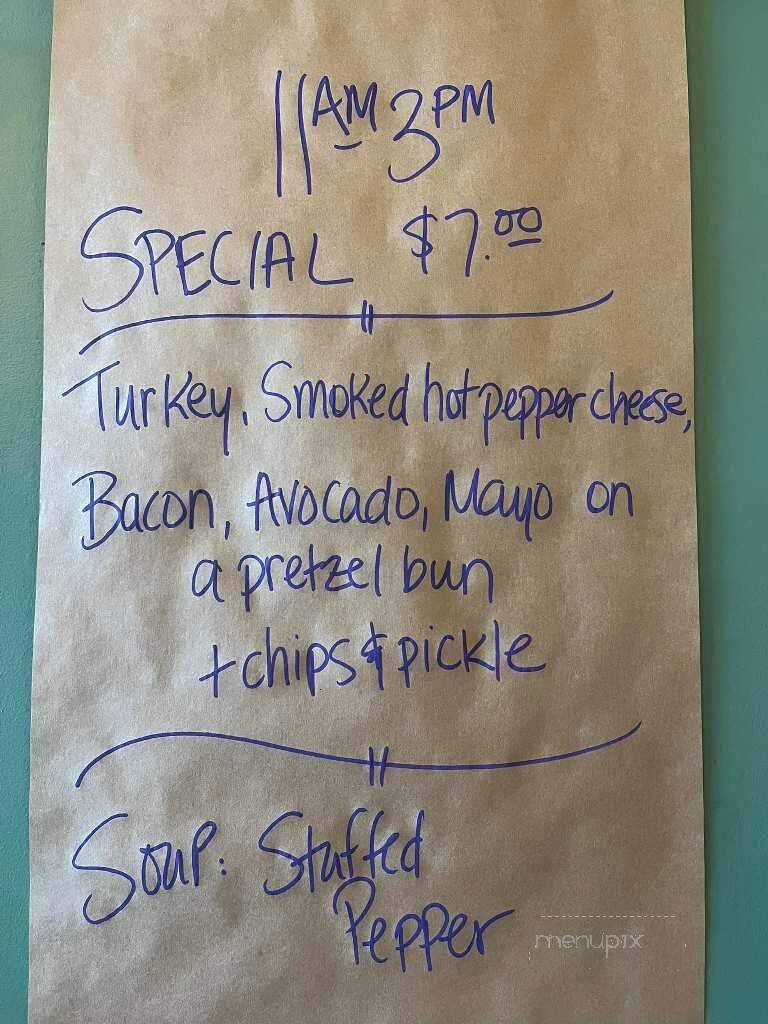 11AM 3PM
SPECIAL $7.00
Turkey, Smoked hot pepper cheese,
Bacon, Avocado, Mayo on
a pretzel bun
+ chips & pickle
Soup: Stuffed
Pepper
menupix